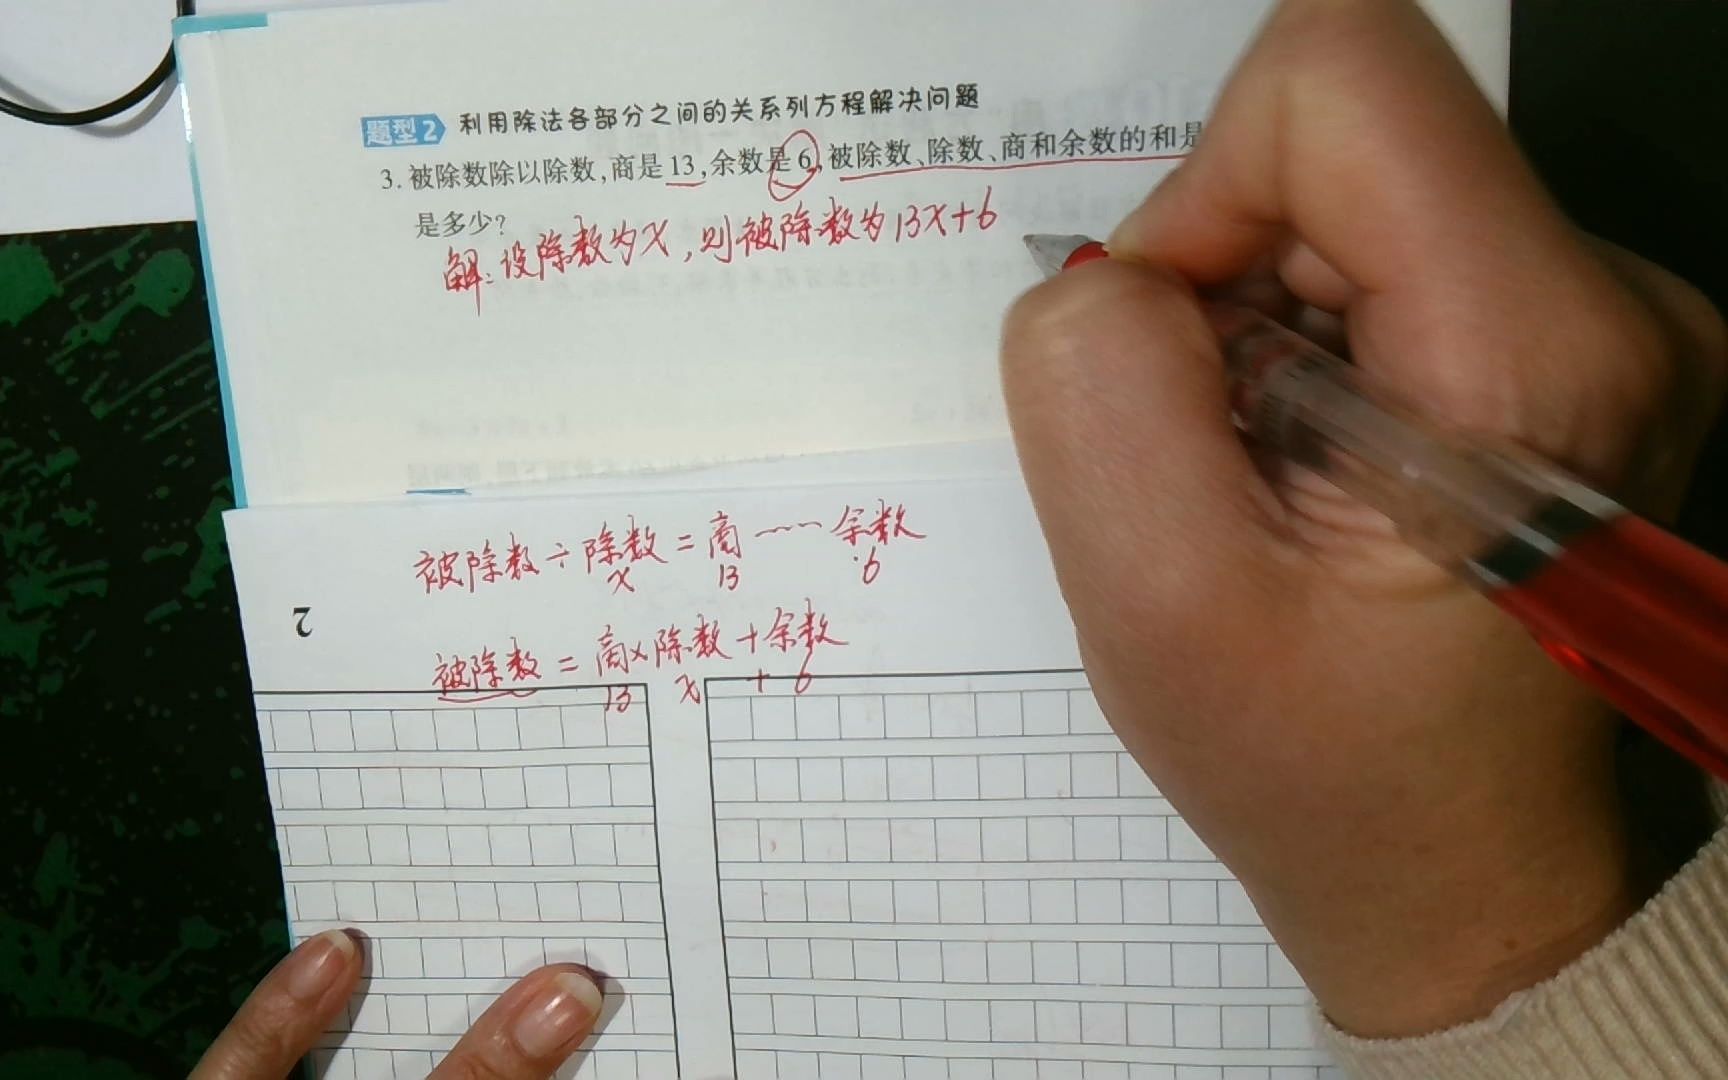 题型2 利用除法各部分之间的关系列方程解决问题
3. 被除数除以除数,商是13,余数是6,被除数、除数、商和余数的和是
是多少?
解:设除数为x,则被除数为13x+6
被除数÷除数=商……余数
x 13 6
2
被除数=商×除数+余数
13 x + 6